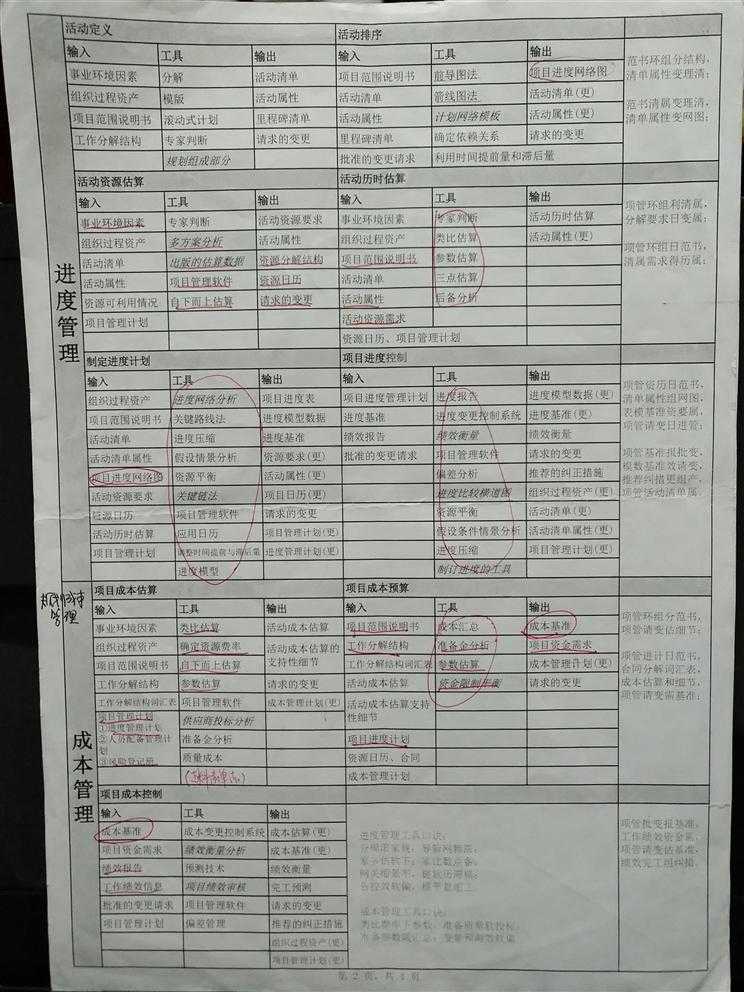 进度管理
活动定义 活动排序
输入 工具 输出 输入 工具 输出
事业环境因素 分解 活动清单 项目范围说明书 前导图法 项目进度网络图
组织过程资产 模版 活动属性 活动清单 箭线图法 活动清单(更)
项目范围说明书 滚动式计划 里程碑清单 活动属性 计划网络模板 活动属性(更)
工作分解结构 专家判断 请求的变更 里程碑清单 确定依赖关系 请求的变更
规划组成部分 批准的变更请求 利用时间提前量和滞后量
范书环组分结构,
清单属性变理清;
范书清属变理清,
清单属性变网图;
活动资源估算 活动历时估算
输入 工具 输出 输入 工具 输出
事业环境因素 专家判断 活动资源要求 事业环境因素 专家判断 活动历时估算
组织过程资产 多方案分析 活动属性 组织过程资产 类比估算 活动属性(更)
活动清单 出版的估算数据 资源分解结构 项目范围说明书 参数估算
活动属性 项目管理软件 资源日历 活动清单 三点估算
资源可利用情况 自下而上估算 请求的变更 活动属性 后备分析
项目管理计划 活动资源需求
资源日历、项目管理计划
项管环组利清属,
分解要求日变属;
项管环组日范书,
清属需求得历属;
制定进度计划 项目进度控制
输入 工具 输出 输入 工具 输出
组织过程资产 进度网络分析 项目进度表 项目进度管理计划 进度报告 进度模型数据(更)
项目范围说明书 关键路线法 进度模型数据 进度基准 进度变更控制系统 进度基准(更)
活动清单 进度压缩 进度基准 绩效报告 绩效衡量 绩效衡量
活动清单属性 假设情景分析 资源要求(更) 批准的变更请求 项目管理软件 请求的变更
项目进度网络图 资源平衡 活动属性(更) 偏差分析 推荐的纠正措施
活动资源要求 关键链法 项目日历(更) 进度比较横道图 组织过程资产(更)
资源日历 项目管理软件 请求的变更 资源平衡 活动清单(更)
活动历时估算 应用日历 项目管理计划(更) 假设条件情景分析 活动清单属性(更)
项目管理计划 调整时间提前与滞后量 进度管理计划(更) 进度压缩 项目管理计划(更)
进度模型 制订进度的工具
项管资历日范书,
清单属性组网图,
表模基准资要属,
项管请变日进管;
项管基准报批变,
模数基准效请变,
推荐纠措更组产,
项管活动清单属。
成本管理
项目成本估算 项目成本预算
输入 工具 输出 输入 工具 输出
事业环境因素 类比估算 活动成本估算 项目范围说明书 成本汇总 成本基准
组织过程资产 确定资源费率 活动成本估算的支持性细节 工作分解结构 准备金分析 项目资金需求
项目范围说明书 自下而上估算 工作分解结构词汇表 参数估算 成本管理计划(更)
工作分解结构 参数估算 请求的变更 活动成本估算 资金限制平衡 请求的变更
工作分解结构词汇表 项目管理软件 成本管理计划(更) 活动成本估算支持性细节
项目管理计划 供应商投标分析
①进度管理计划
②人员配备管理计划 准备金分析 项目进度计划
③风险登记册 质量成本 资源日历、合同
成本管理计划
项管环组分范书,
项管请变估细节;
项管进计日范书,
合同分解词汇表,
成本估算和细节,
项管请变需基准;
项目成本控制
输入 工具 输出
成本基准 成本变更控制系统 成本估算(更)
项目资金需求 绩效衡量分析 成本基准(更)
绩效报告 预测技术 绩效衡量
工作绩效信息 项目绩效审核 完工预测
批准的变更请求 项目管理软件 请求的变更
项目管理计划 偏差管理 推荐的纠正措施
组织过程资产(更)
项目管理计划(更)
进度管理工具口诀:
成本管理工具口诀:
项管批变报基准,
工作绩效资金需,
项管请变估基准,
绩效完工组纠措。
第 2 页,共 4 页